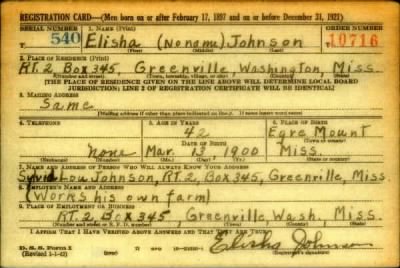 REGISTRATION CARD—(Men born on or after February 17, 1897 and on or before December 31, 1921)
SERIAL NUMBER 1. NAME (Print) ORDER NUMBER
540 Elisha (Noname) Johnson 10716
(First) (Middle) (Last)
2. PLACE OF RESIDENCE (Print)
RT. 2 Box 345, Greenville, Washington, Miss.
(Number and street) (Town, township, village, or city) (County) (State)
[THE PLACE OF RESIDENCE GIVEN ON THE LINE ABOVE WILL DETERMINE LOCAL BOARD
JURISDICTION; LINE 2 OF REGISTRATION CERTIFICATE WILL BE IDENTICAL]
3. MAILING ADDRESS
Same
[Mailing address if other than place indicated on line 2. If same insert word same]
4. TELEPHONE 5. AGE IN YEARS 6. PLACE OF BIRTH
42 Egre Mount
DATE OF BIRTH (Town or county)
none Mar. 13, 1900 Miss.
(Exchange) (Number) (Mo.) (Day) (Yr.) (State or country)
7. NAME AND ADDRESS OF PERSON WHO WILL ALWAYS KNOW YOUR ADDRESS
Lou Johnson, RT. 2, Box 345, Greenville, Miss.
8. EMPLOYER'S NAME AND ADDRESS
(Works his own farm)
9. PLACE OF EMPLOYMENT OR BUSINESS
RT. 2, Box 345, Greenville, Wash, Miss.
(Number and street or R. F. D. number) (Town) (County) (State)
I AFFIRM THAT I HAVE VERIFIED ABOVE ANSWERS AND THAT THEY ARE TRUE.
D. S. S. Form 1 Elisha Johnson
(Revised 1-1-42) (Registrant's signature)